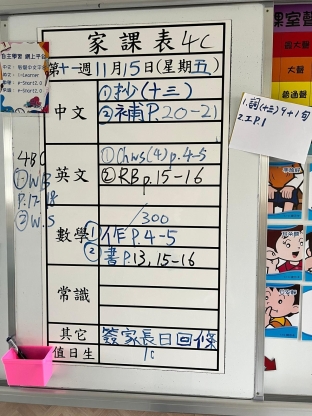 家課表4C
第十一週11月15日(星期五)
中文
①抄(十三)
②補P.20-21
英文
①Chws(4)p.4-5
②RB p.15-16
數學
/300
①作P.4-5
②書P.13,15-16
常識
其它
簽家長日回條
值日生
4BC
①WB
P.17-18
②W.S
自主學習 網上平台
1.詞(十三)9+1句
2.工P1
課室聲
大聲